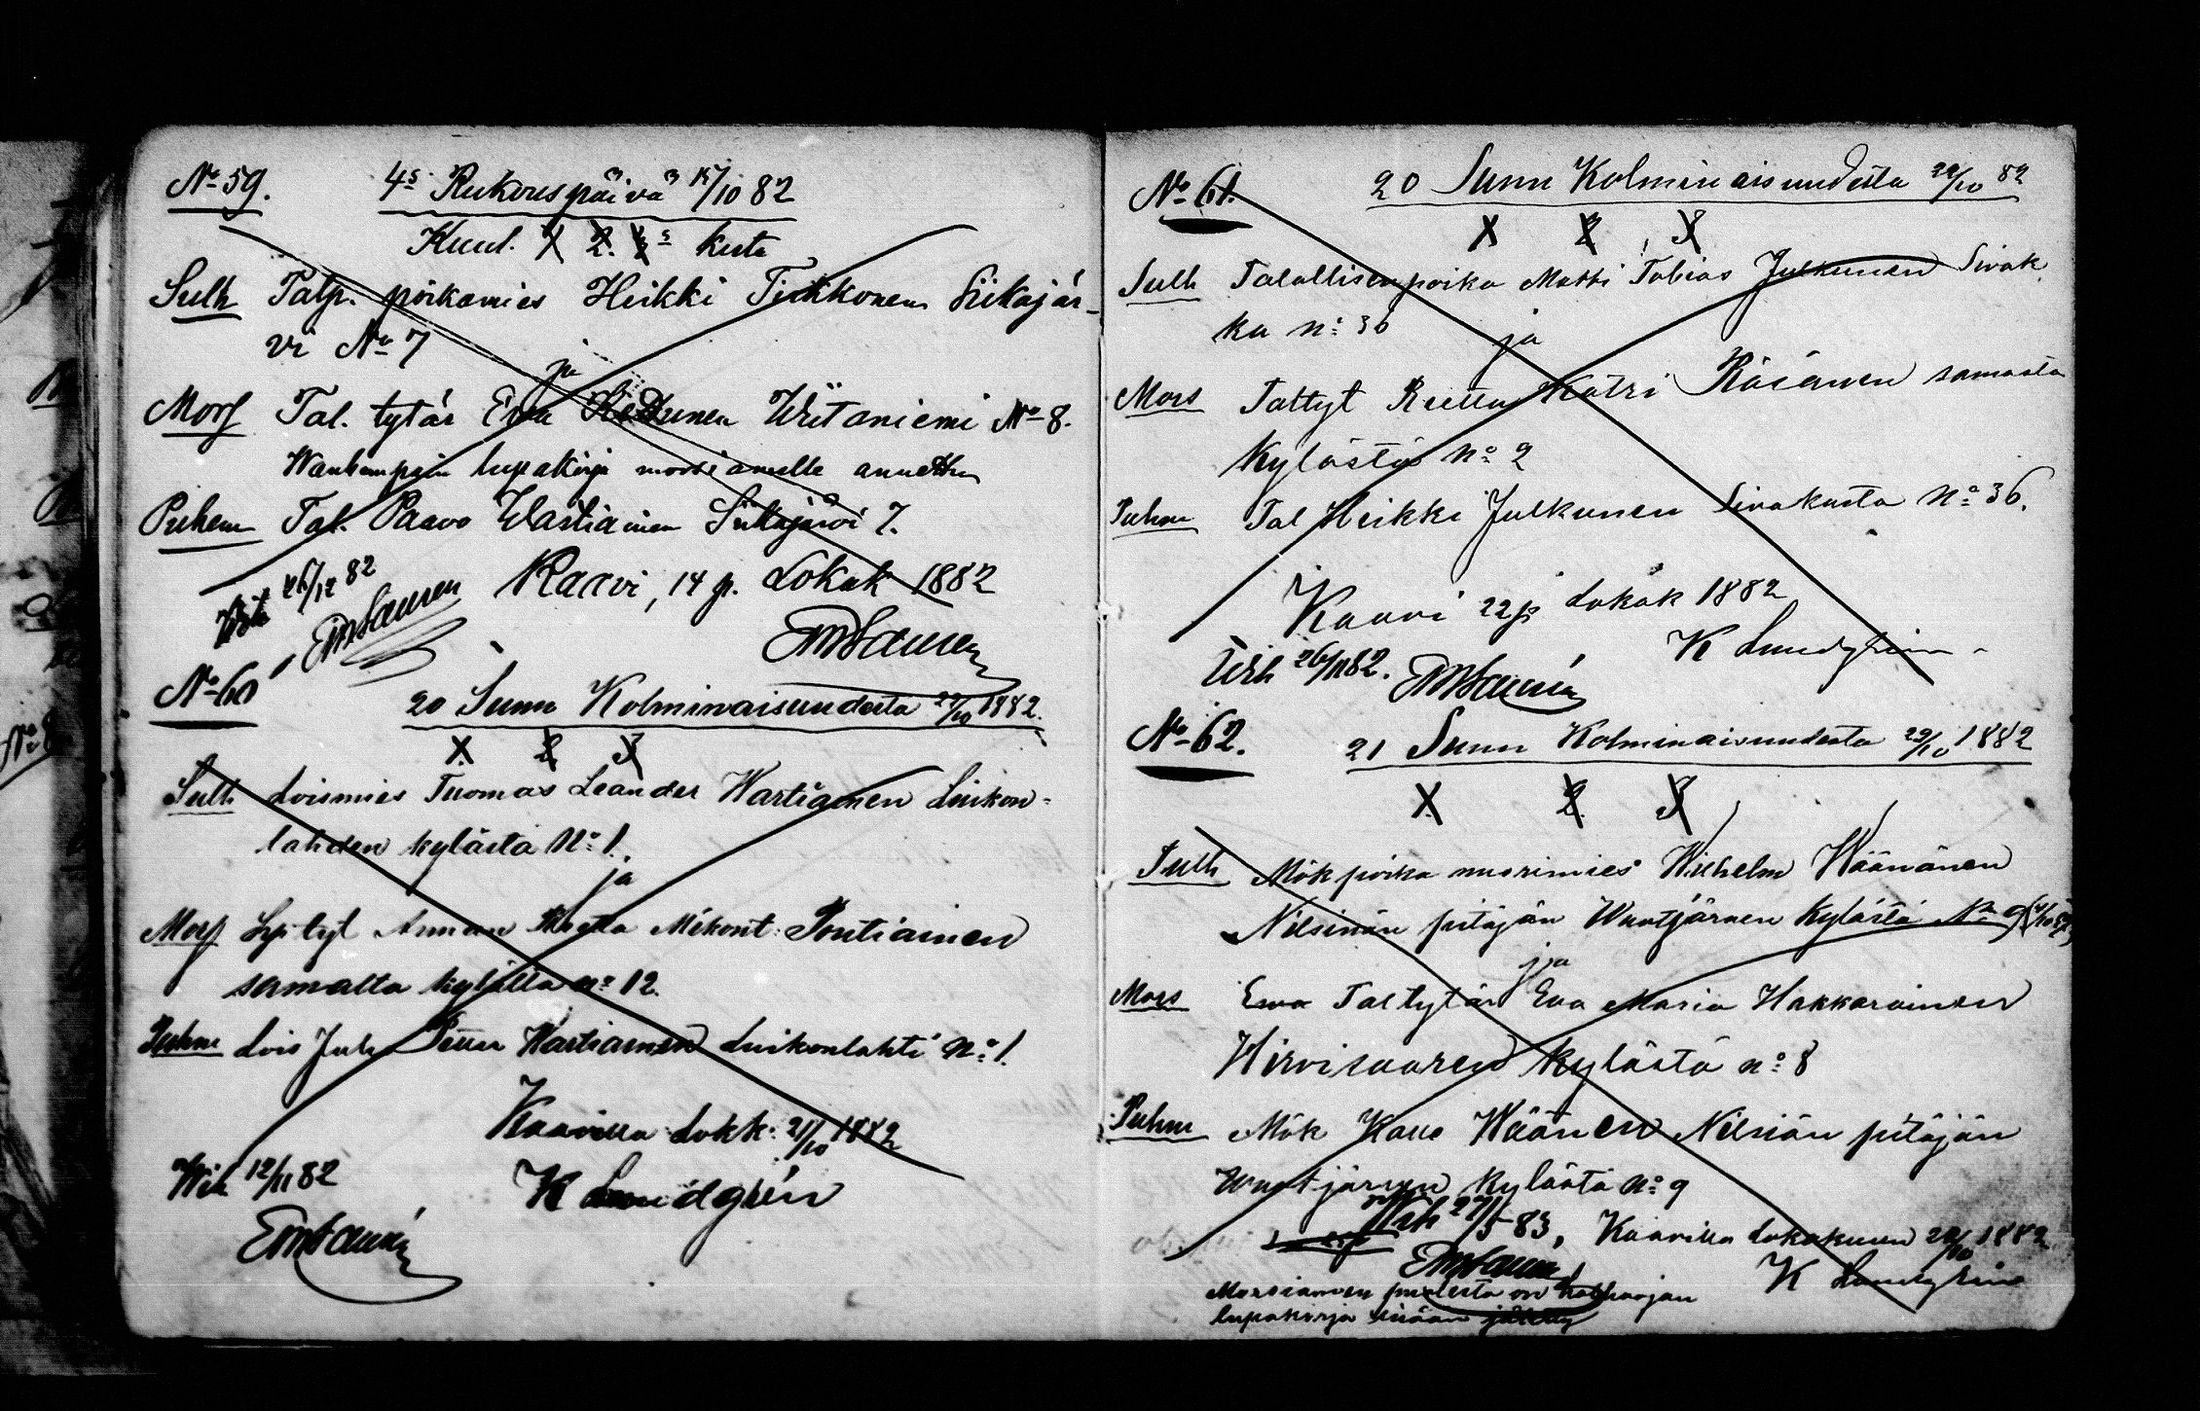 No 59. 4s Rukouspäivä 15/10 82
Kuul. 1 2. 3s kerta
Sulh Talp. poikamies Heikki Tirkkonen Siikajär-
vi No 7
ja
Mors Tal. tytär Eva Ruttunen Wiitaniemi No 8.
Wanhempain lupakirja morsiamelle annettu
Puhem Tal. Paavo Wartiainen Siikajärvi 7.
Kaavi, 14 p. Lokak 1882
Wih 26/12 82
No 60 20 Sunn Kolminaisuudesta 22/10 1882.
X 2 3
Sulh Loismies Tuomas Leander Wartiainen Luikon-
lahden kylästä No 1.
ja
Mors tyt Anna Pontiainen
samalta kylältä no 12.
Puhm Lois Juh Petter Wartiainen Luikonlahti No 1.
Kaavilla Lokk. 21/10 1882
Wih 12/11 82 K Lundgrén
No 61. 20 Sunn Kolminaisuudesta 22/10 82
X 2 3
Sulh Talollisenpoika Matti Tobias Julkunen Sivak
ka no 36
ja
Mors Taltyt Reetta Katri Räsänen samasta
kylästä no 2
Puhm Tal Heikki Julkunen Sivakasta No 36.
Kaavi 22 p Lokak 1882
K Lundgrén
Wih 26/11 82.
No 62. 21 Sunn Kolminaisuudesta 29/10 1882
X 2 3
Sulh Mökpoika nuorimies Wilhelm Wäänänen
Nilsiän pitäjän Wuotjärven kylästä No 9
ja
Mors Eva Taltytär Eva Maria Hakkarainen
Hirvisaaren kylästä no 8
Puhm Mök Wäänänen Nilsiän pitäjän
Wuotjärven kylästä no 9
Wih 27/5 83, Kaavilla Lokakuun 1882
K Lundgrén
Morsiamen puolesta on holhoojan
lupakirja